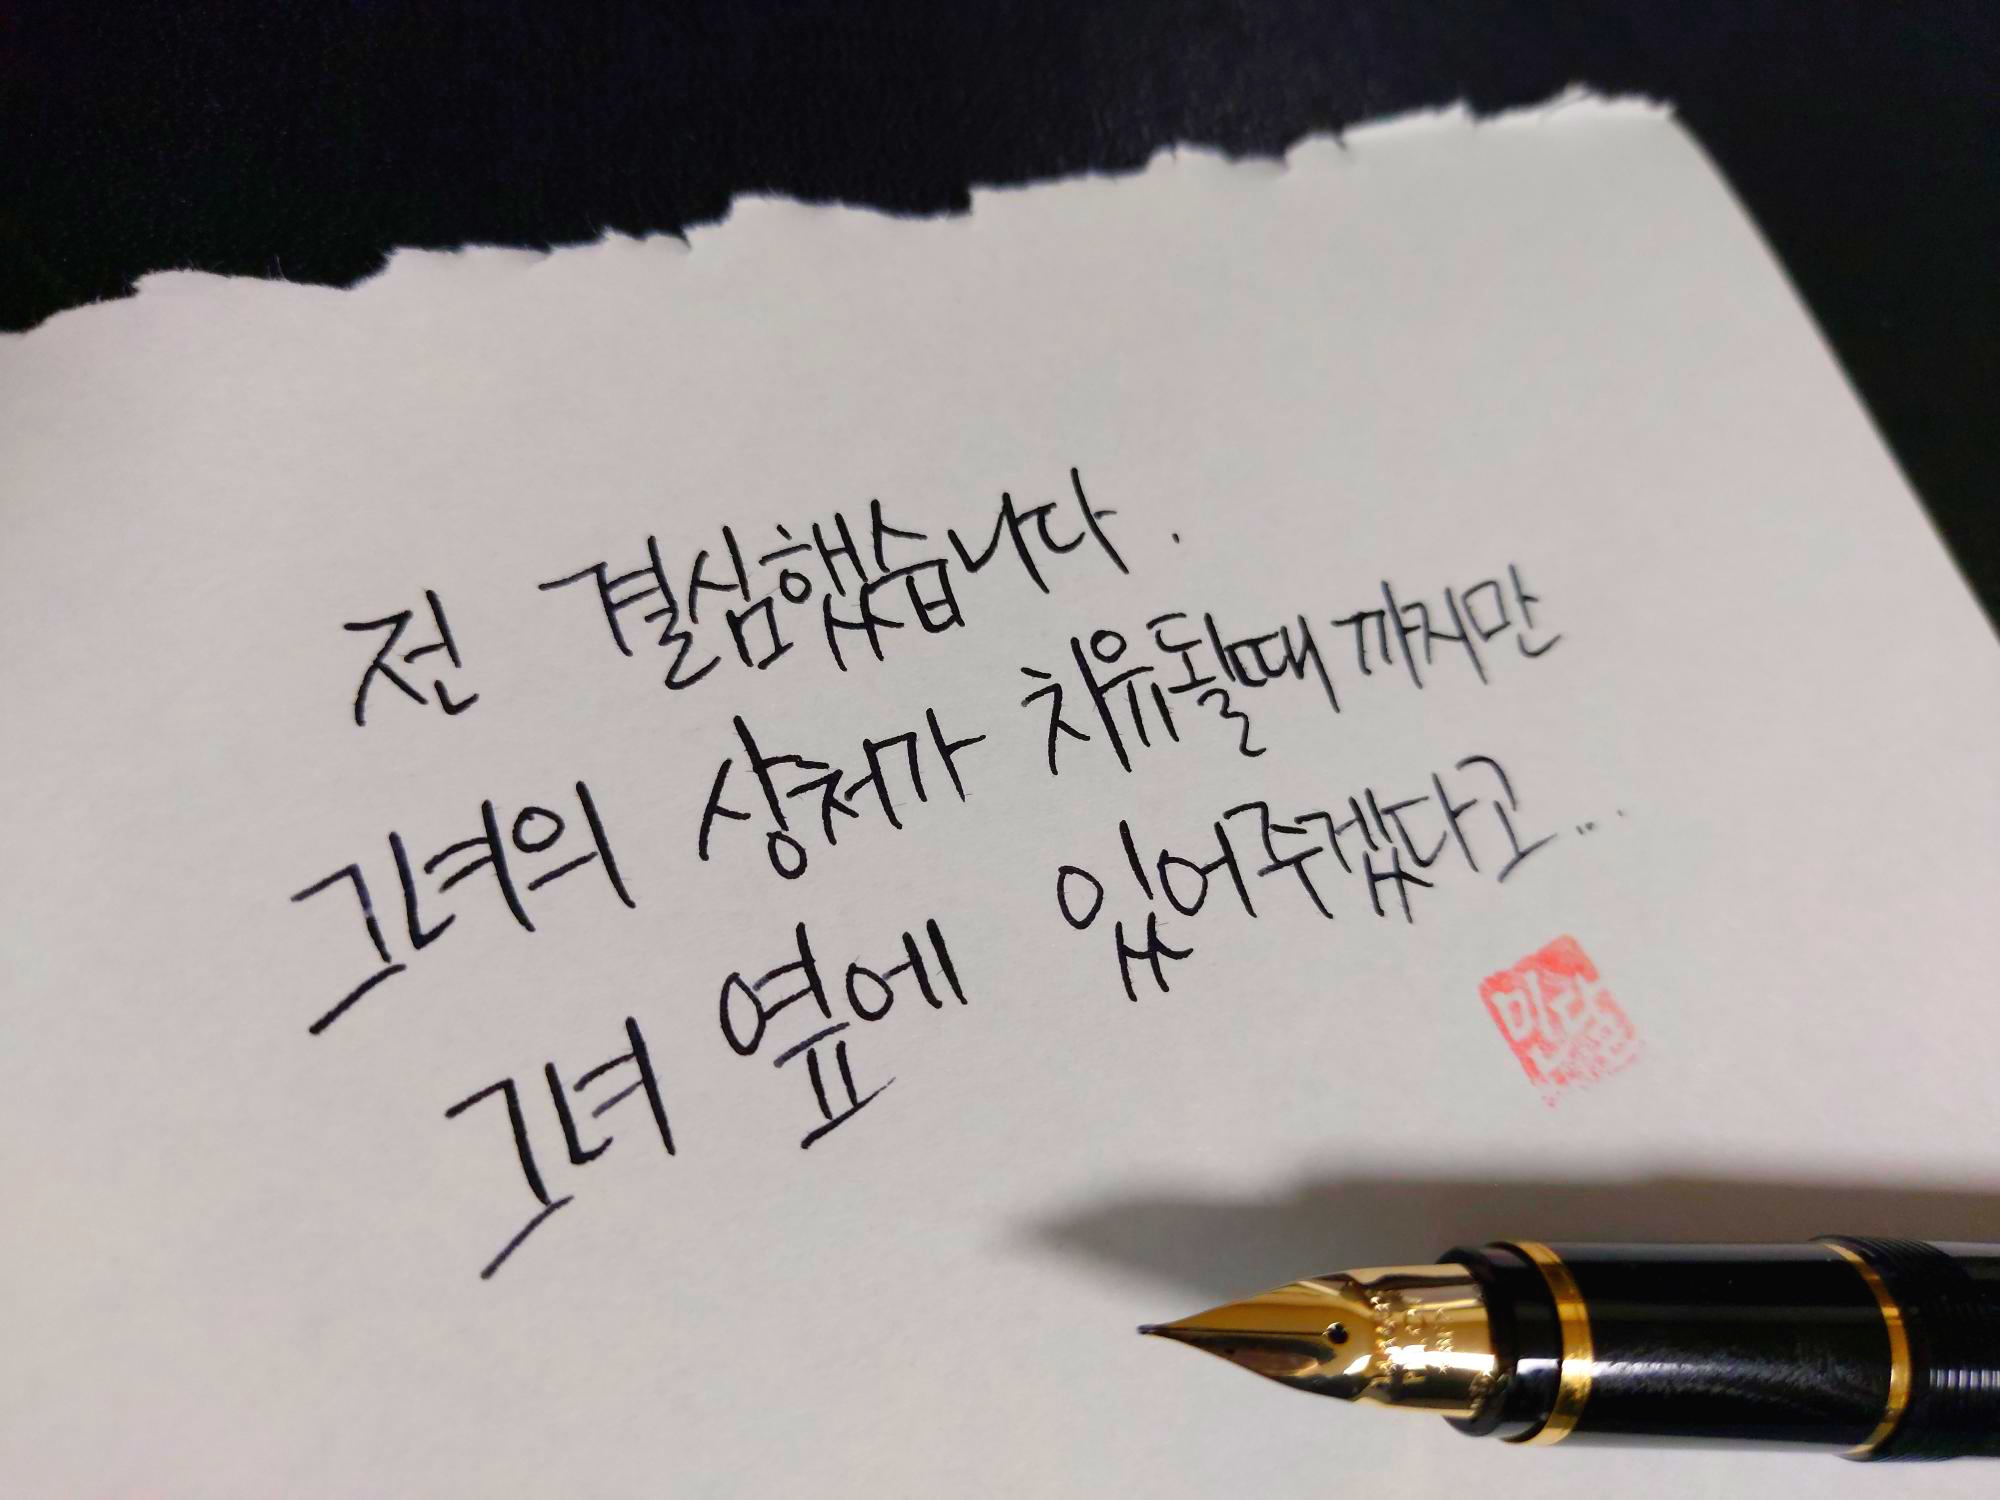 전 결심했습니다.
그녀의 상처가 치유될때 까지만
그녀 옆에 있어주겠다고...